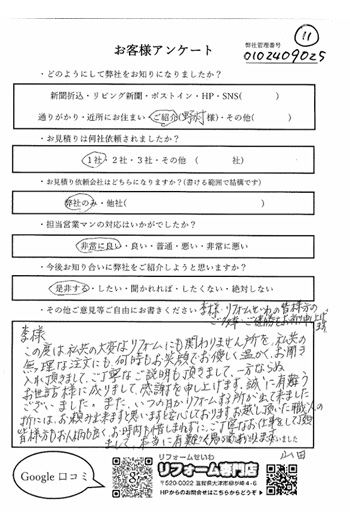 11
お客様アンケート
弊社管理番号
0102409025
・どのようにして弊社をお知りになりましたか？
新聞折込・リビング新聞・ポストイン・HP・SNS(　　　)
通りがかり・近所にお住まい・ご紹介(野村様)・その他(　　　)
・お見積りは何社依頼されましたか？
1社・2社・3社・その他　(　　　社)
・お見積り依頼会社はどちらになりますか？(書ける範囲で結構です)
弊社のみ・他社(　　　)
・担当営業マンの対応はいかがでしたか？
非常に良い・良い・普通・悪い・非常に悪い
・今後お知り合いに弊社をご紹介しようと思いますか？
是非する・したい・聞かれれば・したくない・絶対しない
・その他ご意見等ご自由にお書きください
森様・リフォームせいわの皆様方の
森様
この度は私共の大変なリフォームにも関わりません所を、私共の
無理な注文にも何時もお笑顔でお優しく温かくお聞き
入れ頂きまして、ご丁寧なご説明も頂きまして、一方ならぬ
お世話様に成りまして、感謝を申し上げます。誠に有難う
ございました。また、いつの日かリフォームする所が出て来ました
折には、お頼み出来ますと思いますを心にしております。お越し頂いた職人の
皆様方もお人柄も良く、お時間も惜しまれずにご丁寧なお仕事をして頂き
まして、本当に有難く
山田
Google 口コミ
リフォームせいわ
リフォーム専門店
〒520-0022 滋賀県大津市柳が崎4-6
HPからのお問合せはこちらからどうぞ